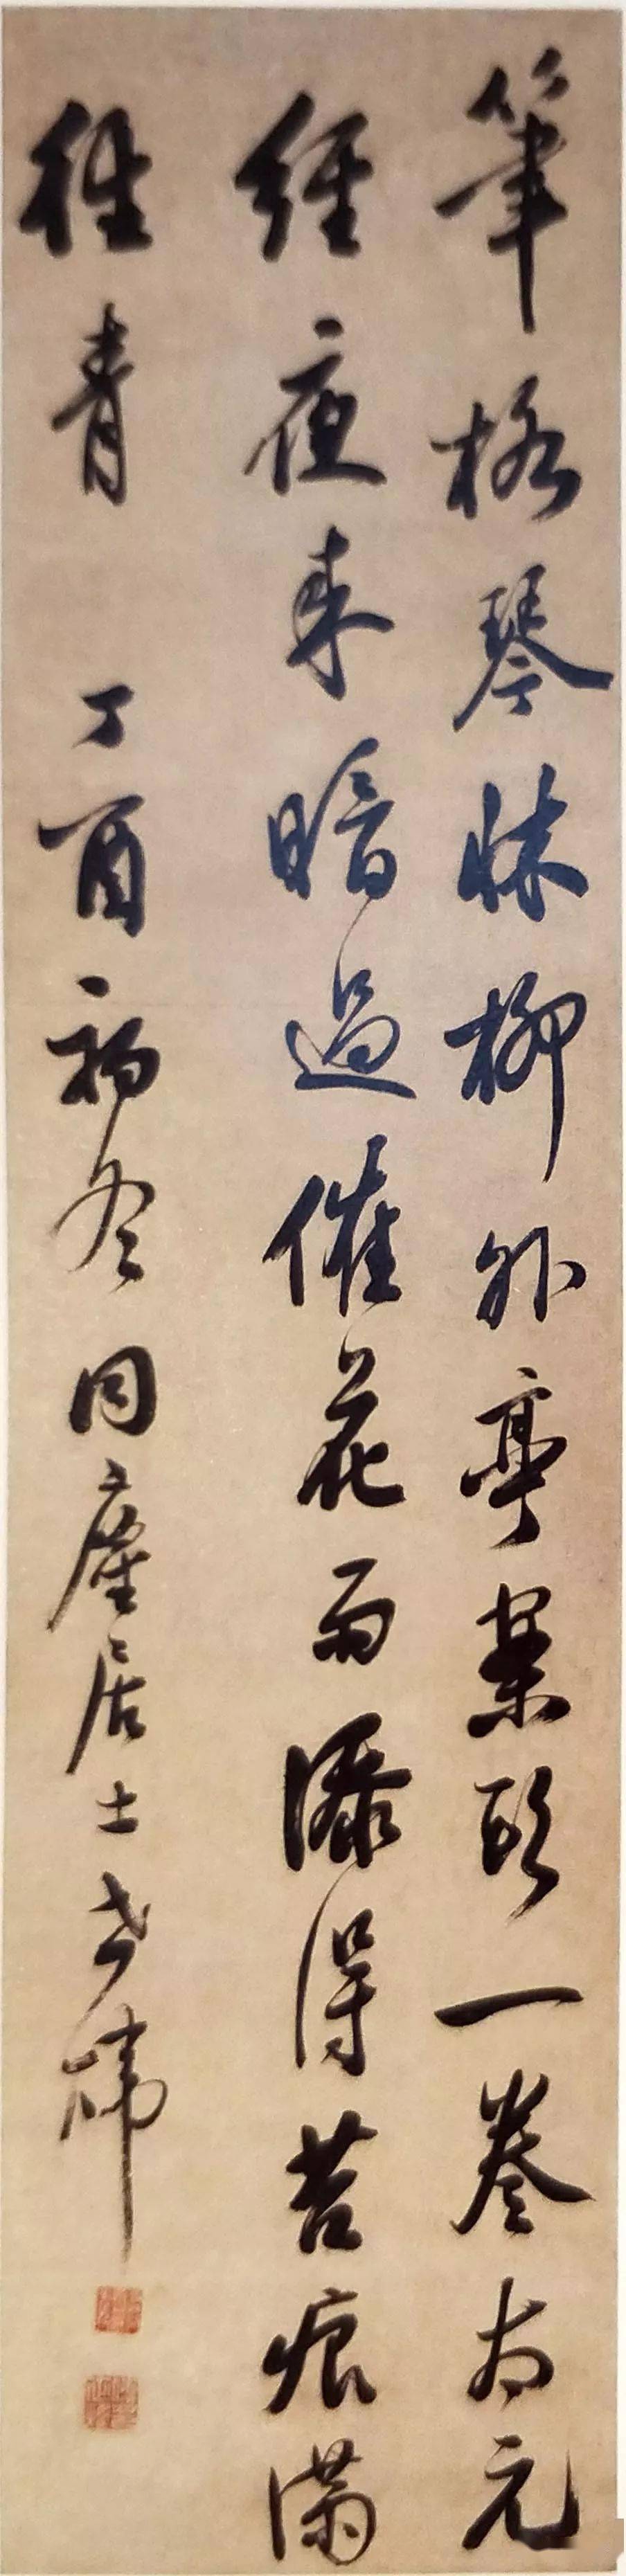 筆格琴牀柳外亭案頭一卷太元
經夜來暗過催花雨添得苔痕滿
徑青 丁酉初冬同塵居士